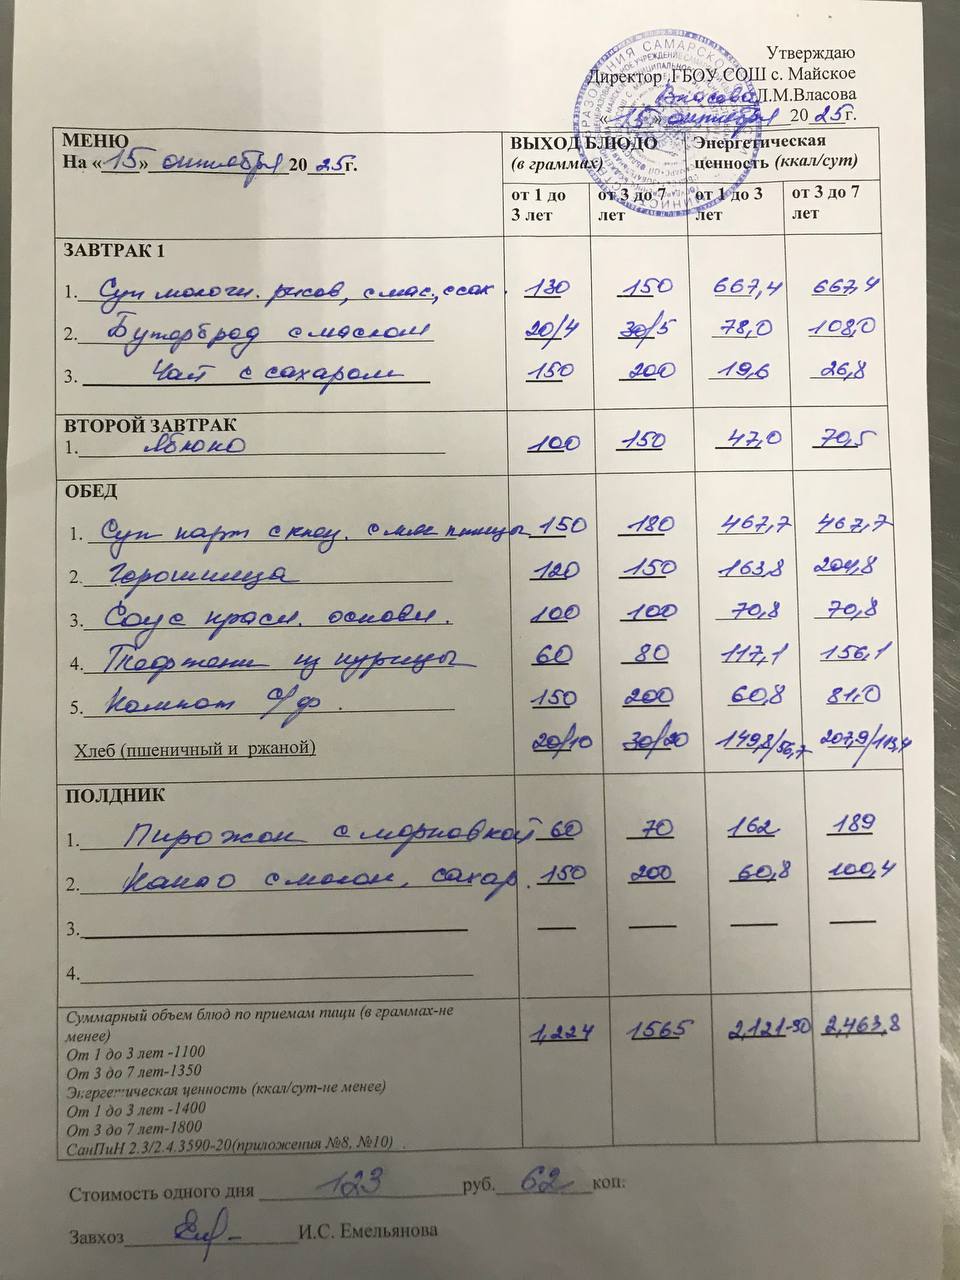 Утверждаю
Директор ГБОУ СОШ с. Майское
Власова Л.М.Власова
«15» октября 20 25г.
МЕНЮ
На «15» октября 20 25г.
ВЫХОД БЛЮДО
(в граммах)
Энергетическая
ценность (ккал/сут)
от 1 до 3 лет
от 3 до 7 лет
от 1 до 3 лет
от 3 до 7 лет
ЗАВТРАК 1
1. Суп молочн. рисов, с мас., с сах. 130 150 667,4 667,4
2. Бутерброд с маслом 20/4 30/5 78,0 108,0
3. Чай с сахаром 150 200 19,6 26,8
ВТОРОЙ ЗАВТРАК
1. Яблоко 100 150 47,0 70,5
ОБЕД
1. Суп карт с клец. с мяс птицы 150 180 467,7 467,7
2. Горошница 120 150 163,8 204,8
3. Соус красн. основн. 100 100 70,8 70,8
4. Тефтели из курицы 60 80 117,1 156,1
5. Компот с/ф. 150 200 60,8 81,0
Хлеб (пшеничный и ржаной) 20/10 30/20 149,8/56,7 207,9/113,4
ПОЛДНИК
1. Пирожок с морковкой 60 70 162 189
2. Какао с молок, сахар. 150 200 60,8 100,4
3.
4.
Суммарный объем блюд по приемам пищи (в граммах-не
менее)
От 1 до 3 лет -1100
От 3 до 7 лет-1350
Энергетическая ценность (ккал/сут-не менее)
От 1 до 3 лет -1400
От 3 до 7 лет-1800
СанПиН 2.3/2.4.3590-20(приложения №8, №10)
1,224 1565 2,121-90 2,463,8
Стоимость одного дня 123 руб. 62 коп.
Завхоз И.С. Емельянова